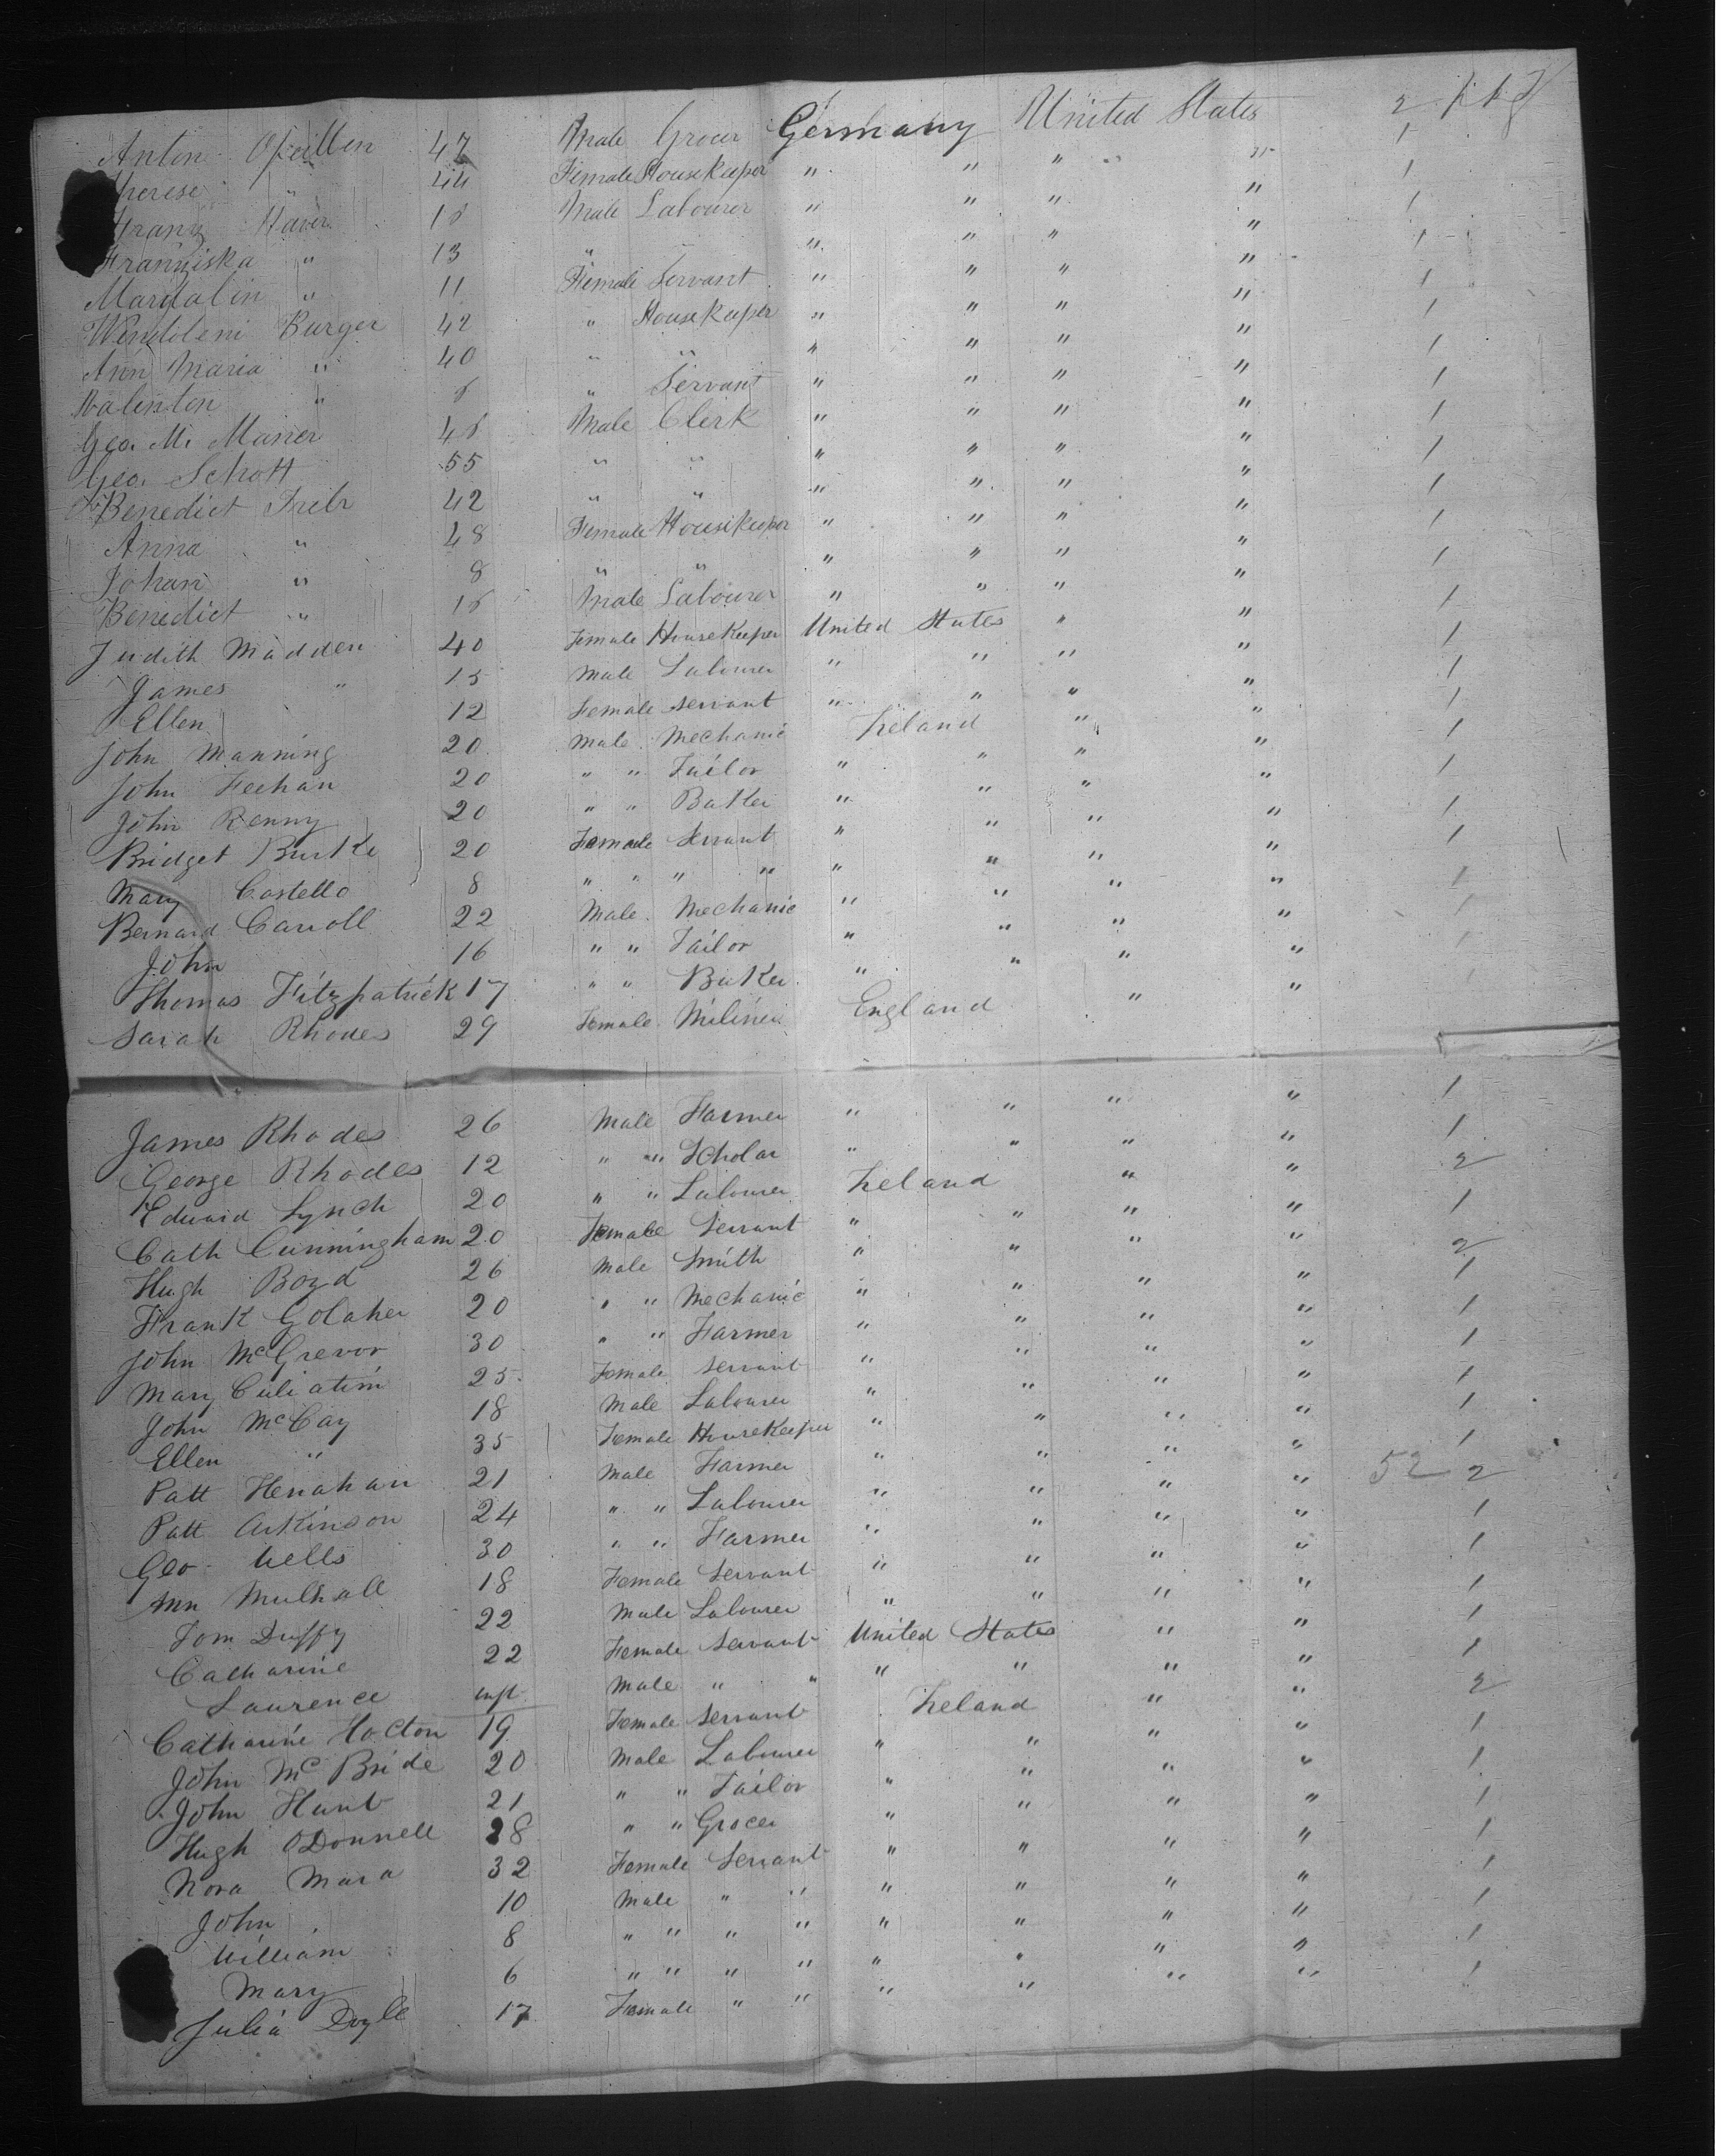 Anton 47 Male Grocer Germany United States 2
Therese " 44 Female Housekeeper " " " " 1
Franz Xaver 18 Male Labourer " " " " 1
Franziska " 13 " " " " " 1
Margdalin " 11 Female Servant " " " " 1
Wendoleni Burger 42 " Housekeeper " " " " 1
Ann Maria " 40 " " " " " " 1
Valentin " 8 " Servant " " " " 1
Geo. M. Manier 48 Male Clerk " " " " 1
Geo. Schott 55 " " " " " " 1
Benedict 42 " " " " " " 1
Anna " 48 Female Housekeeper " " " " 1
Johan " 8 " " " " " " 1
Benedict " 18 Male Labourer " " " " 1
Judith Madden 40 Female HouseKeeper United States " " 1
James " 15 Male Labourer " " " " 1
Ellen 12 Female Servant " " " " 1
John Manning 20 Male Mechanic Ireland " " 1
John Feehan 20 " " Tailor " " " " 1
John Renny 20 " " Baker " " " " 1
Bridget Burke 20 Female Servant " " " " 1
Mary Costello 8 " " " " " " " " 1
Bernard Carroll 22 Male Mechanic " " " " 1
John 16 " " Tailor " " " " 1
Thomas Fitzpatrick 17 " " Baker " " " "
Sarah Rhodes 29 Female Miliner England " "
James Rhodes 26 Male Farmer " " " " 1
George Rhodes 12 " " Scholar " " " " 1
Edward Lynch 20 " " Labourer Ireland " " 2
Cath Cunningham 20 Female Servant " " " " 1
Hugh Boyd 26 Male Smith " " " " 2
Frank Golaher 20 " " Mechanic " " " " 1
John McGrevor 30 " " Farmer " " " " 1
Mary 25 Female Servant " " " " 1
John McCay 18 Male Labourer " " " " 1
Ellen " 35 Female HouseKeeper " " " " 1
Patt Henahan 21 Male Farmer " " " " 1
Patt Arkinson 24 " " Labourer " " " " 52 2
Geo. Wells 30 " " Farmer " " " " 1
Ann Mulhall 18 Female Servant " " " " 1
Tom Duffy 22 Male Labourer " " " " 1
Catharine 22 Female Servant United States " " 1
Laurence inft Male " " " " " " 1
Catharine Hocton 19 Female Servant Ireland " " 2
John McBride 20 Male Labourer " " " " 1
John Hunt 21 " " Tailor " " " " 1
Hugh ODonnell 28 " " Grocer " " " " 1
Nora Mara 32 Female Servant " " " " 1
John 10 Male " " " " " " 1
William 8 " " " " " " " " 1
Mary 6 " " " " " " " " 1
Julia Doyle 17 Female " " " " " " 1